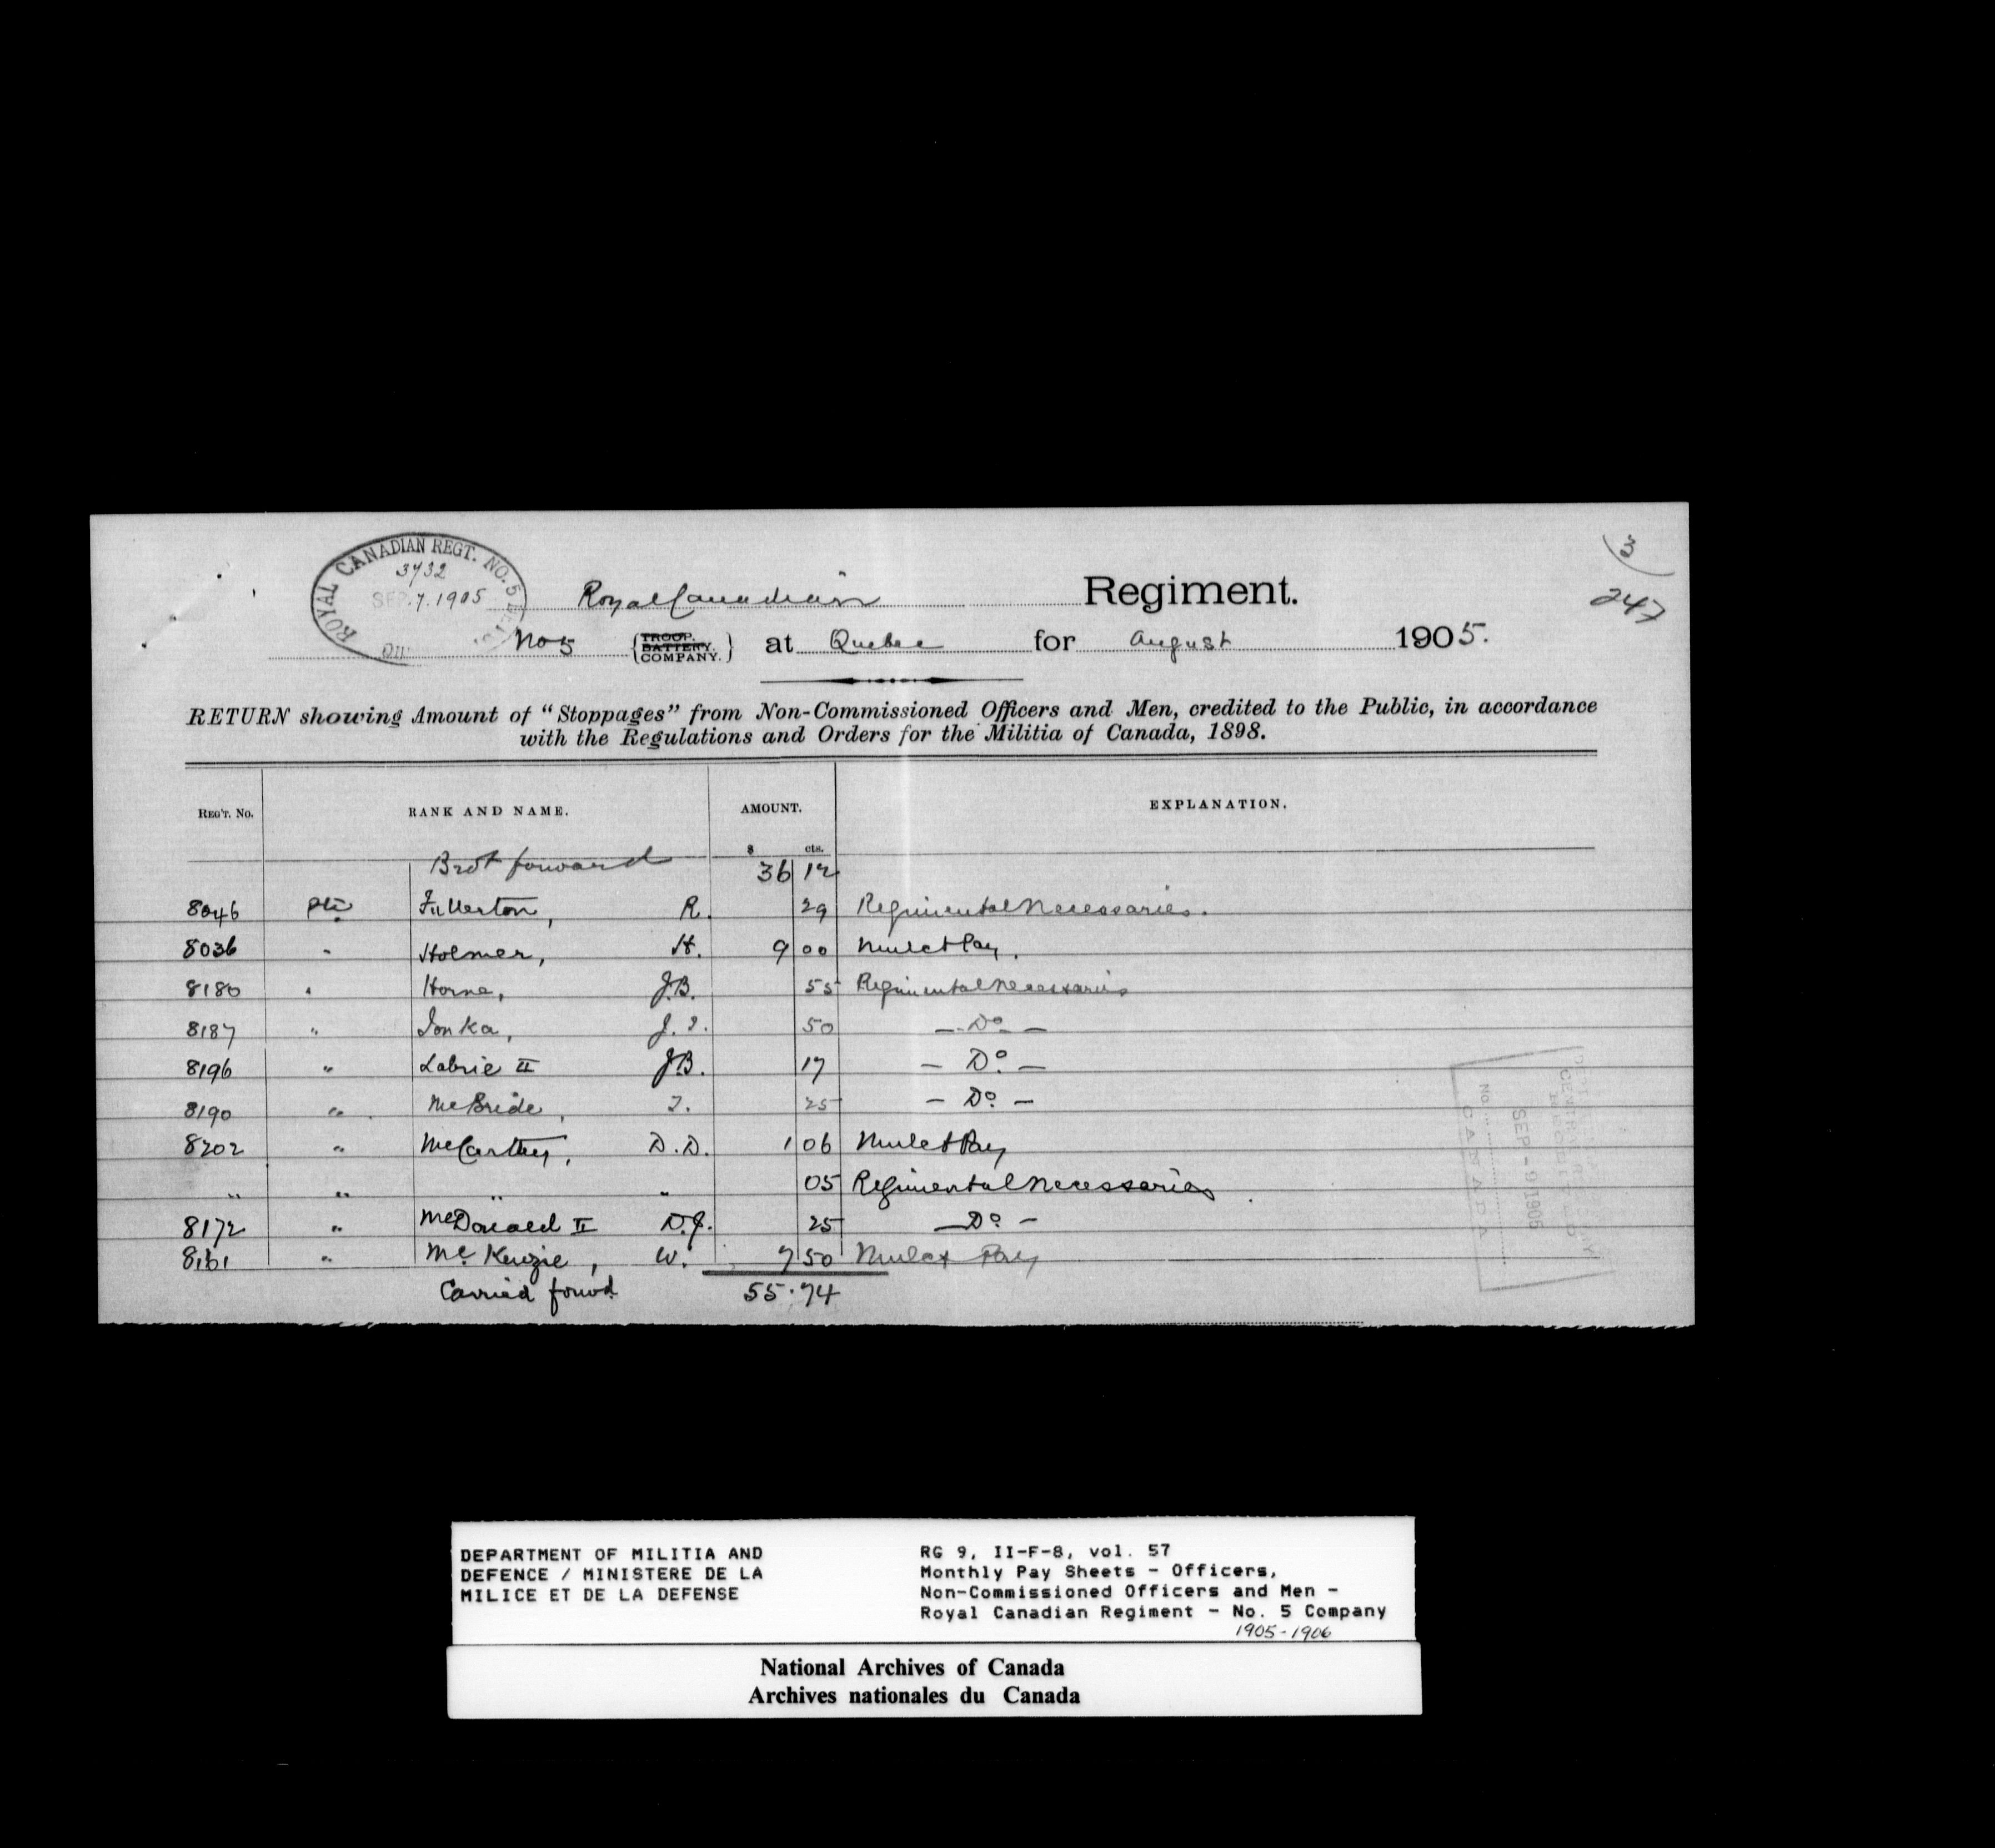 3
247
ROYAL CANADIAN REGT. NO. 5
3732
SEP. 7. 1905
Royal Canadian Regiment.
No 5 {TROOP. BATTERY. COMPANY.} at Quebec for August 1905.
RETURN showing Amount of “Stoppages” from Non-Commissioned Officers and Men, credited to the Public, in accordance
with the Regulations and Orders for the Militia of Canada, 1898.
REG'T. No. RANK AND NAME. AMOUNT. EXPLANATION.
$ cts.
Brot forward 36 12
8046 Pte Fullerton, R. 29 Regimental Necessaries.
8036 " Holmer, H. 9 00 Mulct Pay.
8180 " Horne, J.B. 55 Regimental Necessaries
8187 " Ionka, J. I. 50 — Do —
8196 " Labrie II J.B. 17 — Do —
8190 " McBride, I. 25 — Do —
8202 " McCarthy, D.D. 1 06 Mulct Pay
" " " " 05 Regimental Necessaries
8172 " McDonald II D.J. 25 — Do —
8161 " McKenzie, W. 7 50 Mulct Pay
Carried forwd 55.74
NO.
CANADA
SEP - 9 1905
DEPARTMENT OF MILITIA AND
DEFENCE / MINISTERE DE LA
MILICE ET DE LA DEFENSE
RG 9, II-F-8, vol. 57
Monthly Pay Sheets - Officers,
Non-Commissioned Officers and Men -
Royal Canadian Regiment - No. 5 Company
1905-1906
National Archives of Canada
Archives nationales du Canada